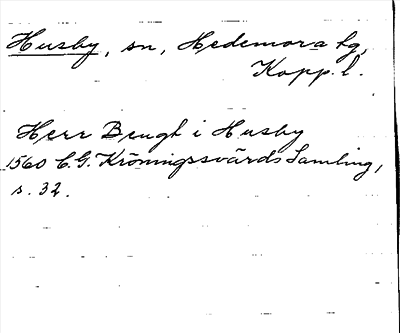 Husby, sn, Hedemora tg,
Kopp. l.
Herr Bengt i Husby
1560 C.G. Kröningssvärds Samling,
s. 32.